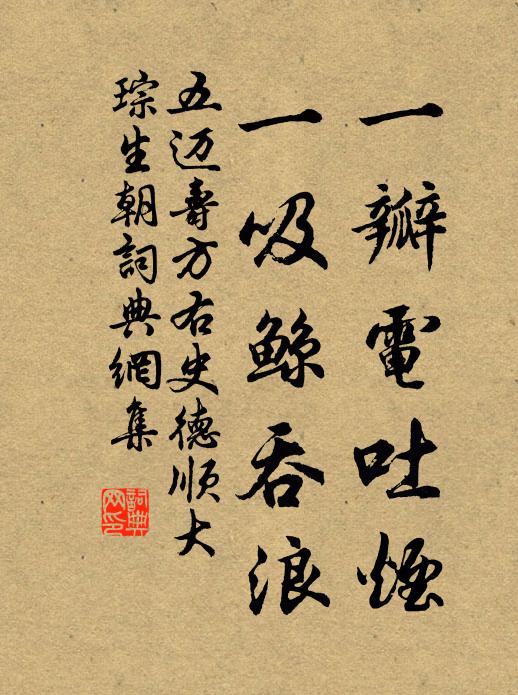 一瓣電吐煙
一吸鯨吞浪
五迈壽方右史德順大
琮生朝詞典網集
詞典网印